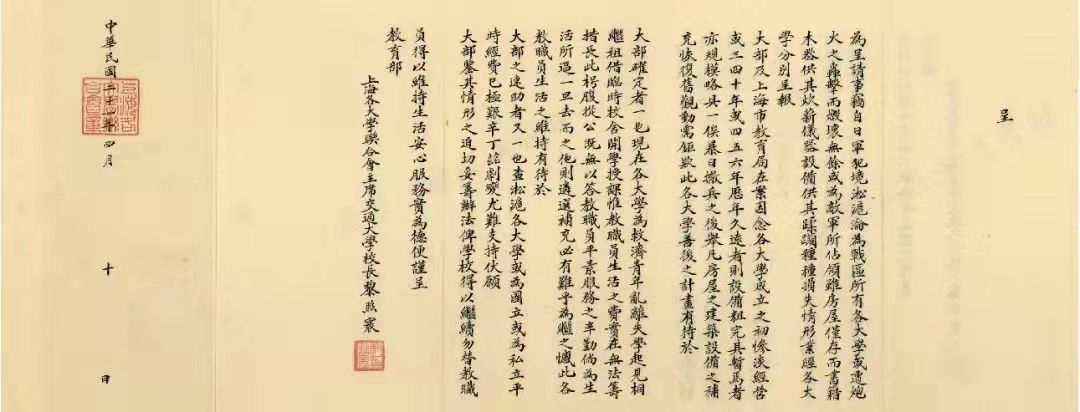 呈
為呈請事竊自日軍犯境淞滬淪為戰區所有各大學或遭炮
火之轟擊而燬壞無餘或為敵軍所佔領雖房屋僅存而書籍
木器供其炊薪儀器設備供其蹂躪種種損失情形業經各大
學分別呈報
大部及上海市教育局在案因念各大學成立之初慘淡經營
或三四十年或四五六年歷年久遠者則設備粗完其暫焉者
亦規模略具一俟暴日撤兵之後舉凡房屋之建築設備之補
充恢復舊觀動需鉅款此各大學善後之計畫有待於
大部確定者一也現在各大學為救濟青年亂離失學起見相
繼租借臨時校舍開學授課惟教職員生活之費實在無法籌
措長此枵腹從公既無以答教職員平素服務之辛勤倘為生
活所逼一旦去而之他則遴選補充必有難乎為繼之憾此各
教職員生活之維持有待於
大部之速助者又一也查淞滬各大學或為國立或為私立平
時經費已極艱辛丁茲劇變尤難支持伏願
大部鑒其情形之迫切妥籌辦法俾學校得以繼續勿替教職
員得以維持生活安心服務實為德便謹呈
教育部
上海各大學聯合會主席交通大學校長黎照寰
中華民國二十一年四月十日